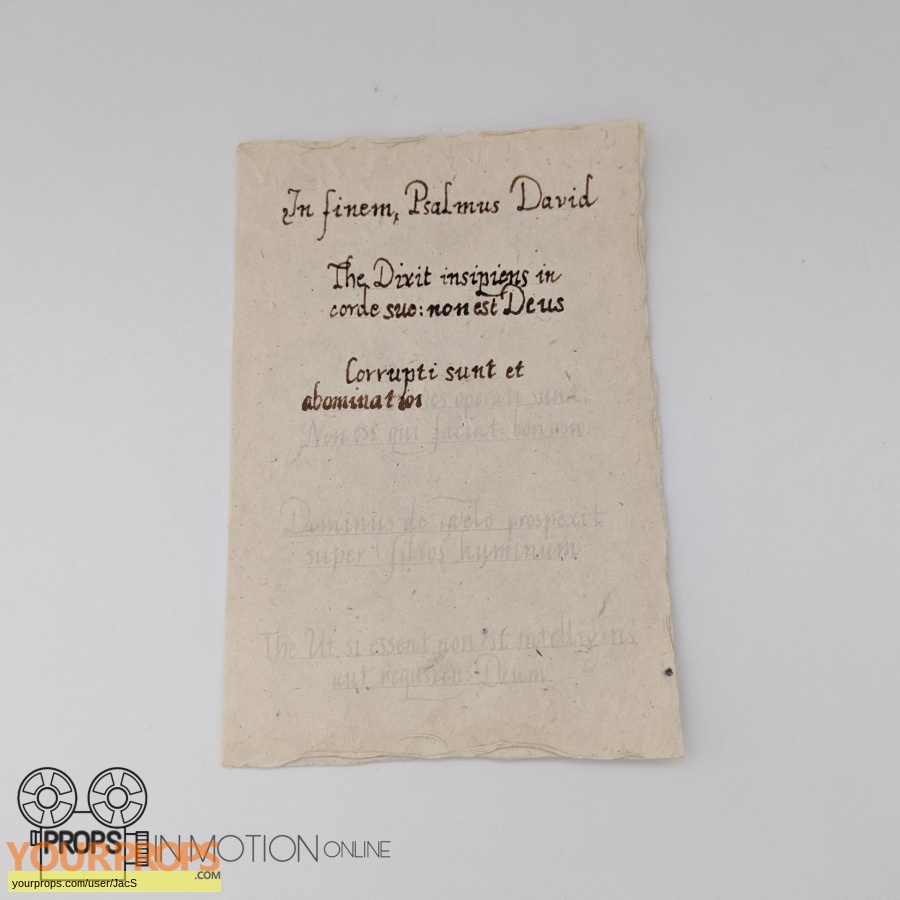 In finem, Psalmus David
The Dixit insipiens in
corde suo: non est Deus
Corrupti sunt et
abominatioi es operati sunt,
Non est qui faciat bonum
Dominus de caelo prospexit
super filios huminum
The Ut si essent non est intelligens
aut requirens Deum
PROPS IN MOTION ONLINE
YOURPROPS
.COM
yourprops.com/user/JacS